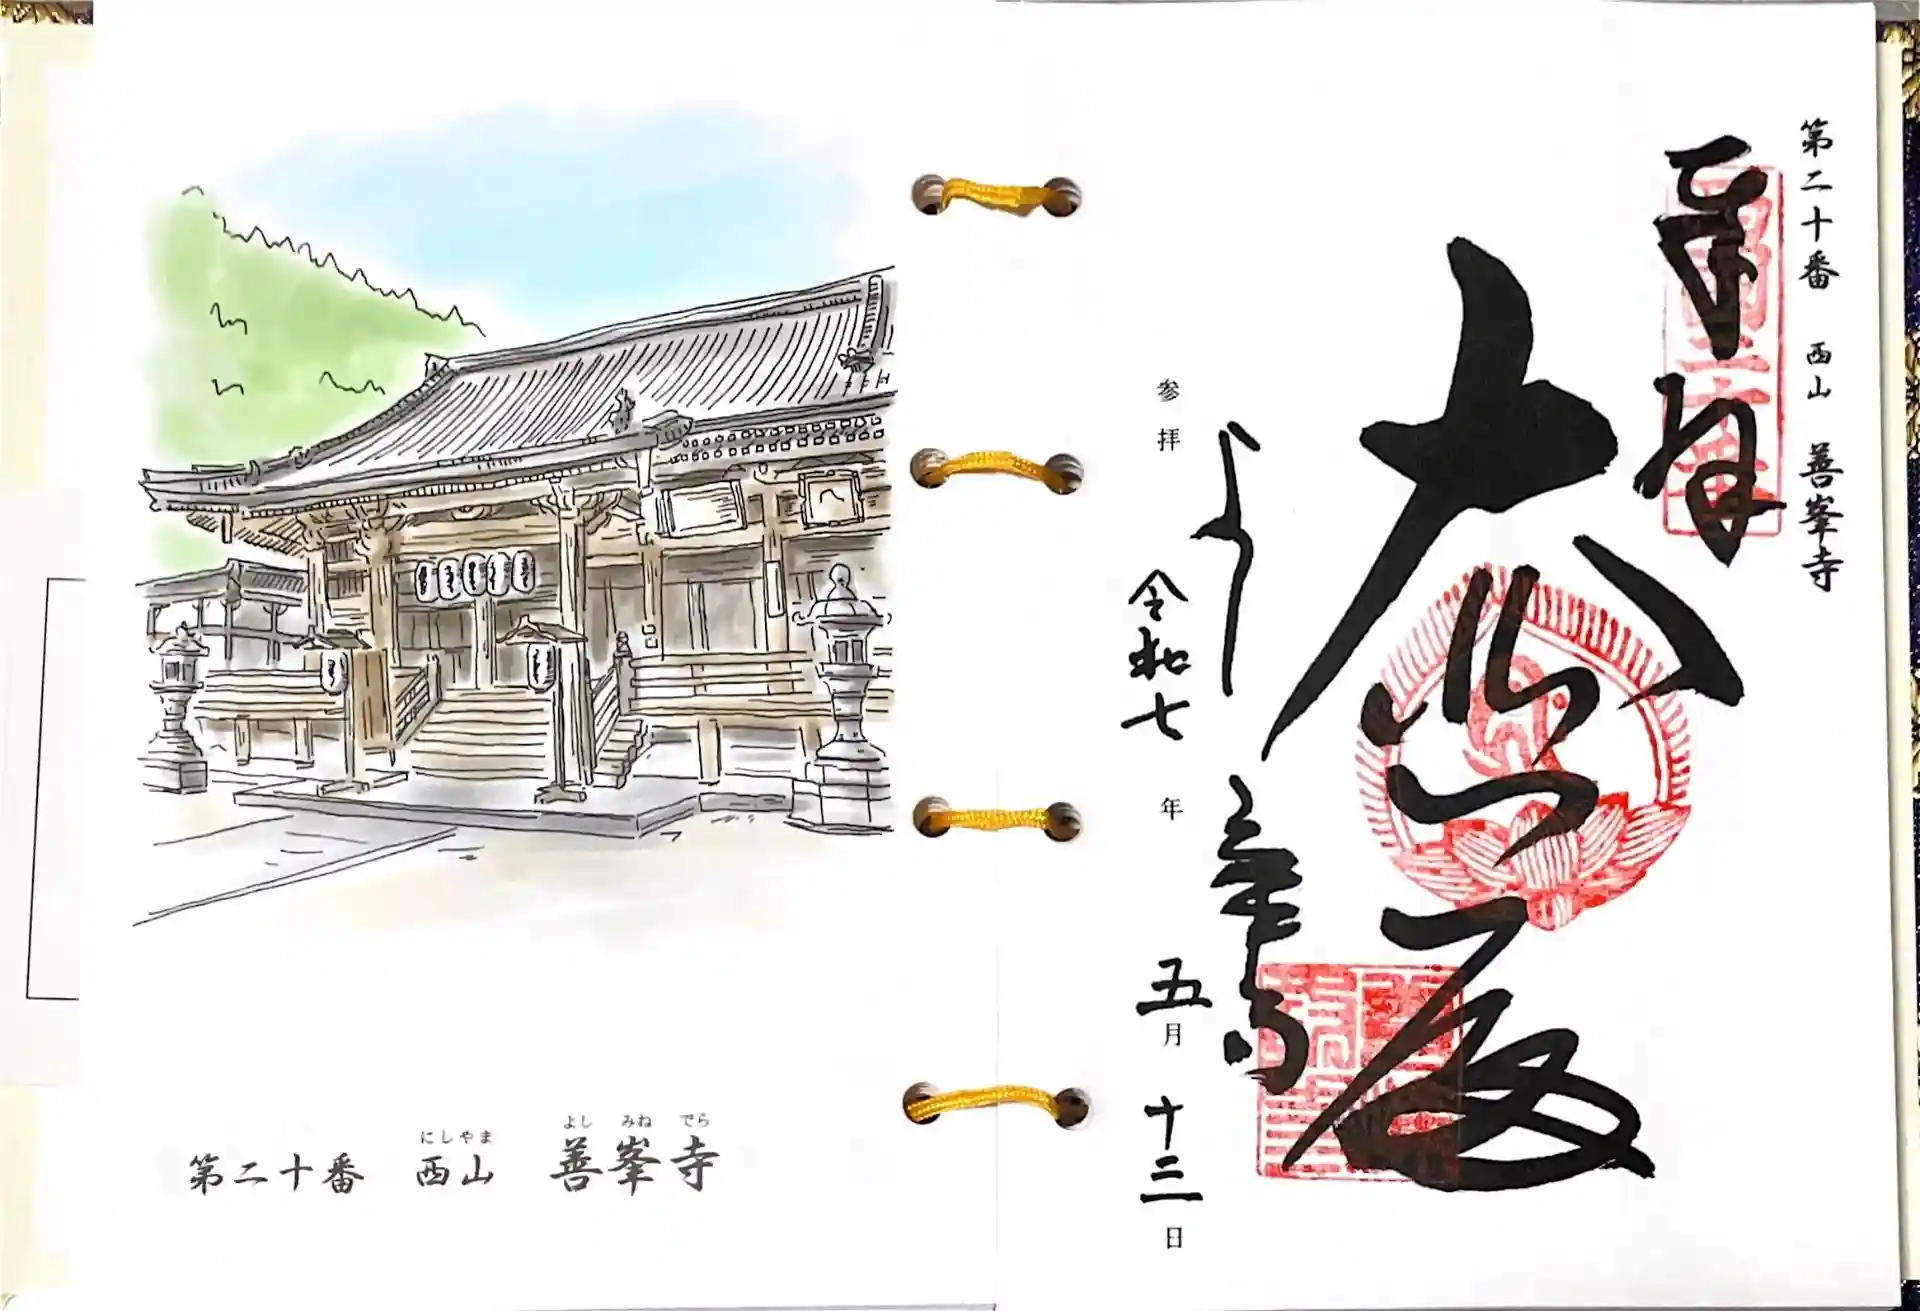 第二十番 西山 善峯寺
奉拝
大悲殿
よし峯寺
参拝 令和七年 五月 十三日
にしやま よしみねでら
第二十番 西山 善峯寺